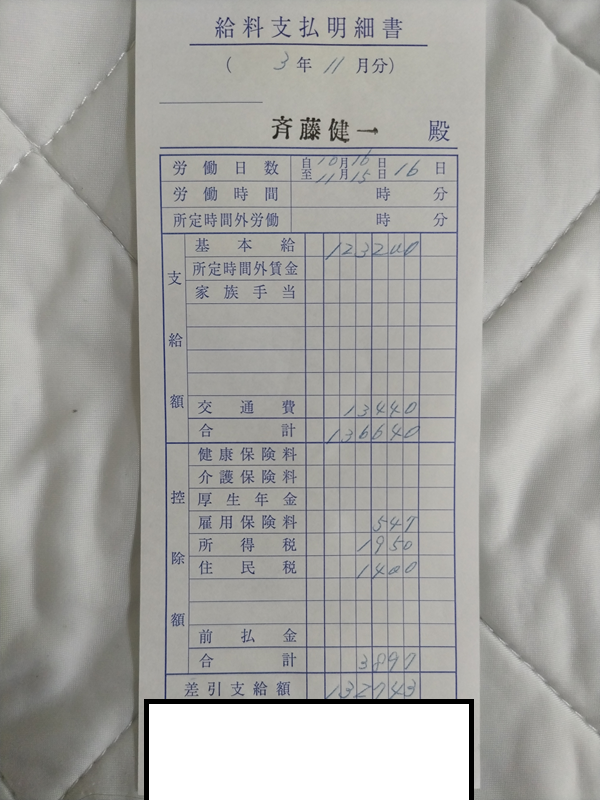 給料支払明細書
( 3年 11月分)
斉藤健一 殿
労働日数 自10月16日 至11月15日 16日
労働時間 時 分
所定時間外労働 時 分
支給額
基本給 123200
所定時間外賃金
家族手当
交通費 13440
合計 136640
控除額
健康保険料
介護保険料
厚生年金
雇用保険料 547
所得税 1950
住民税 1400
前払金
合計 3897
差引支給額 132743